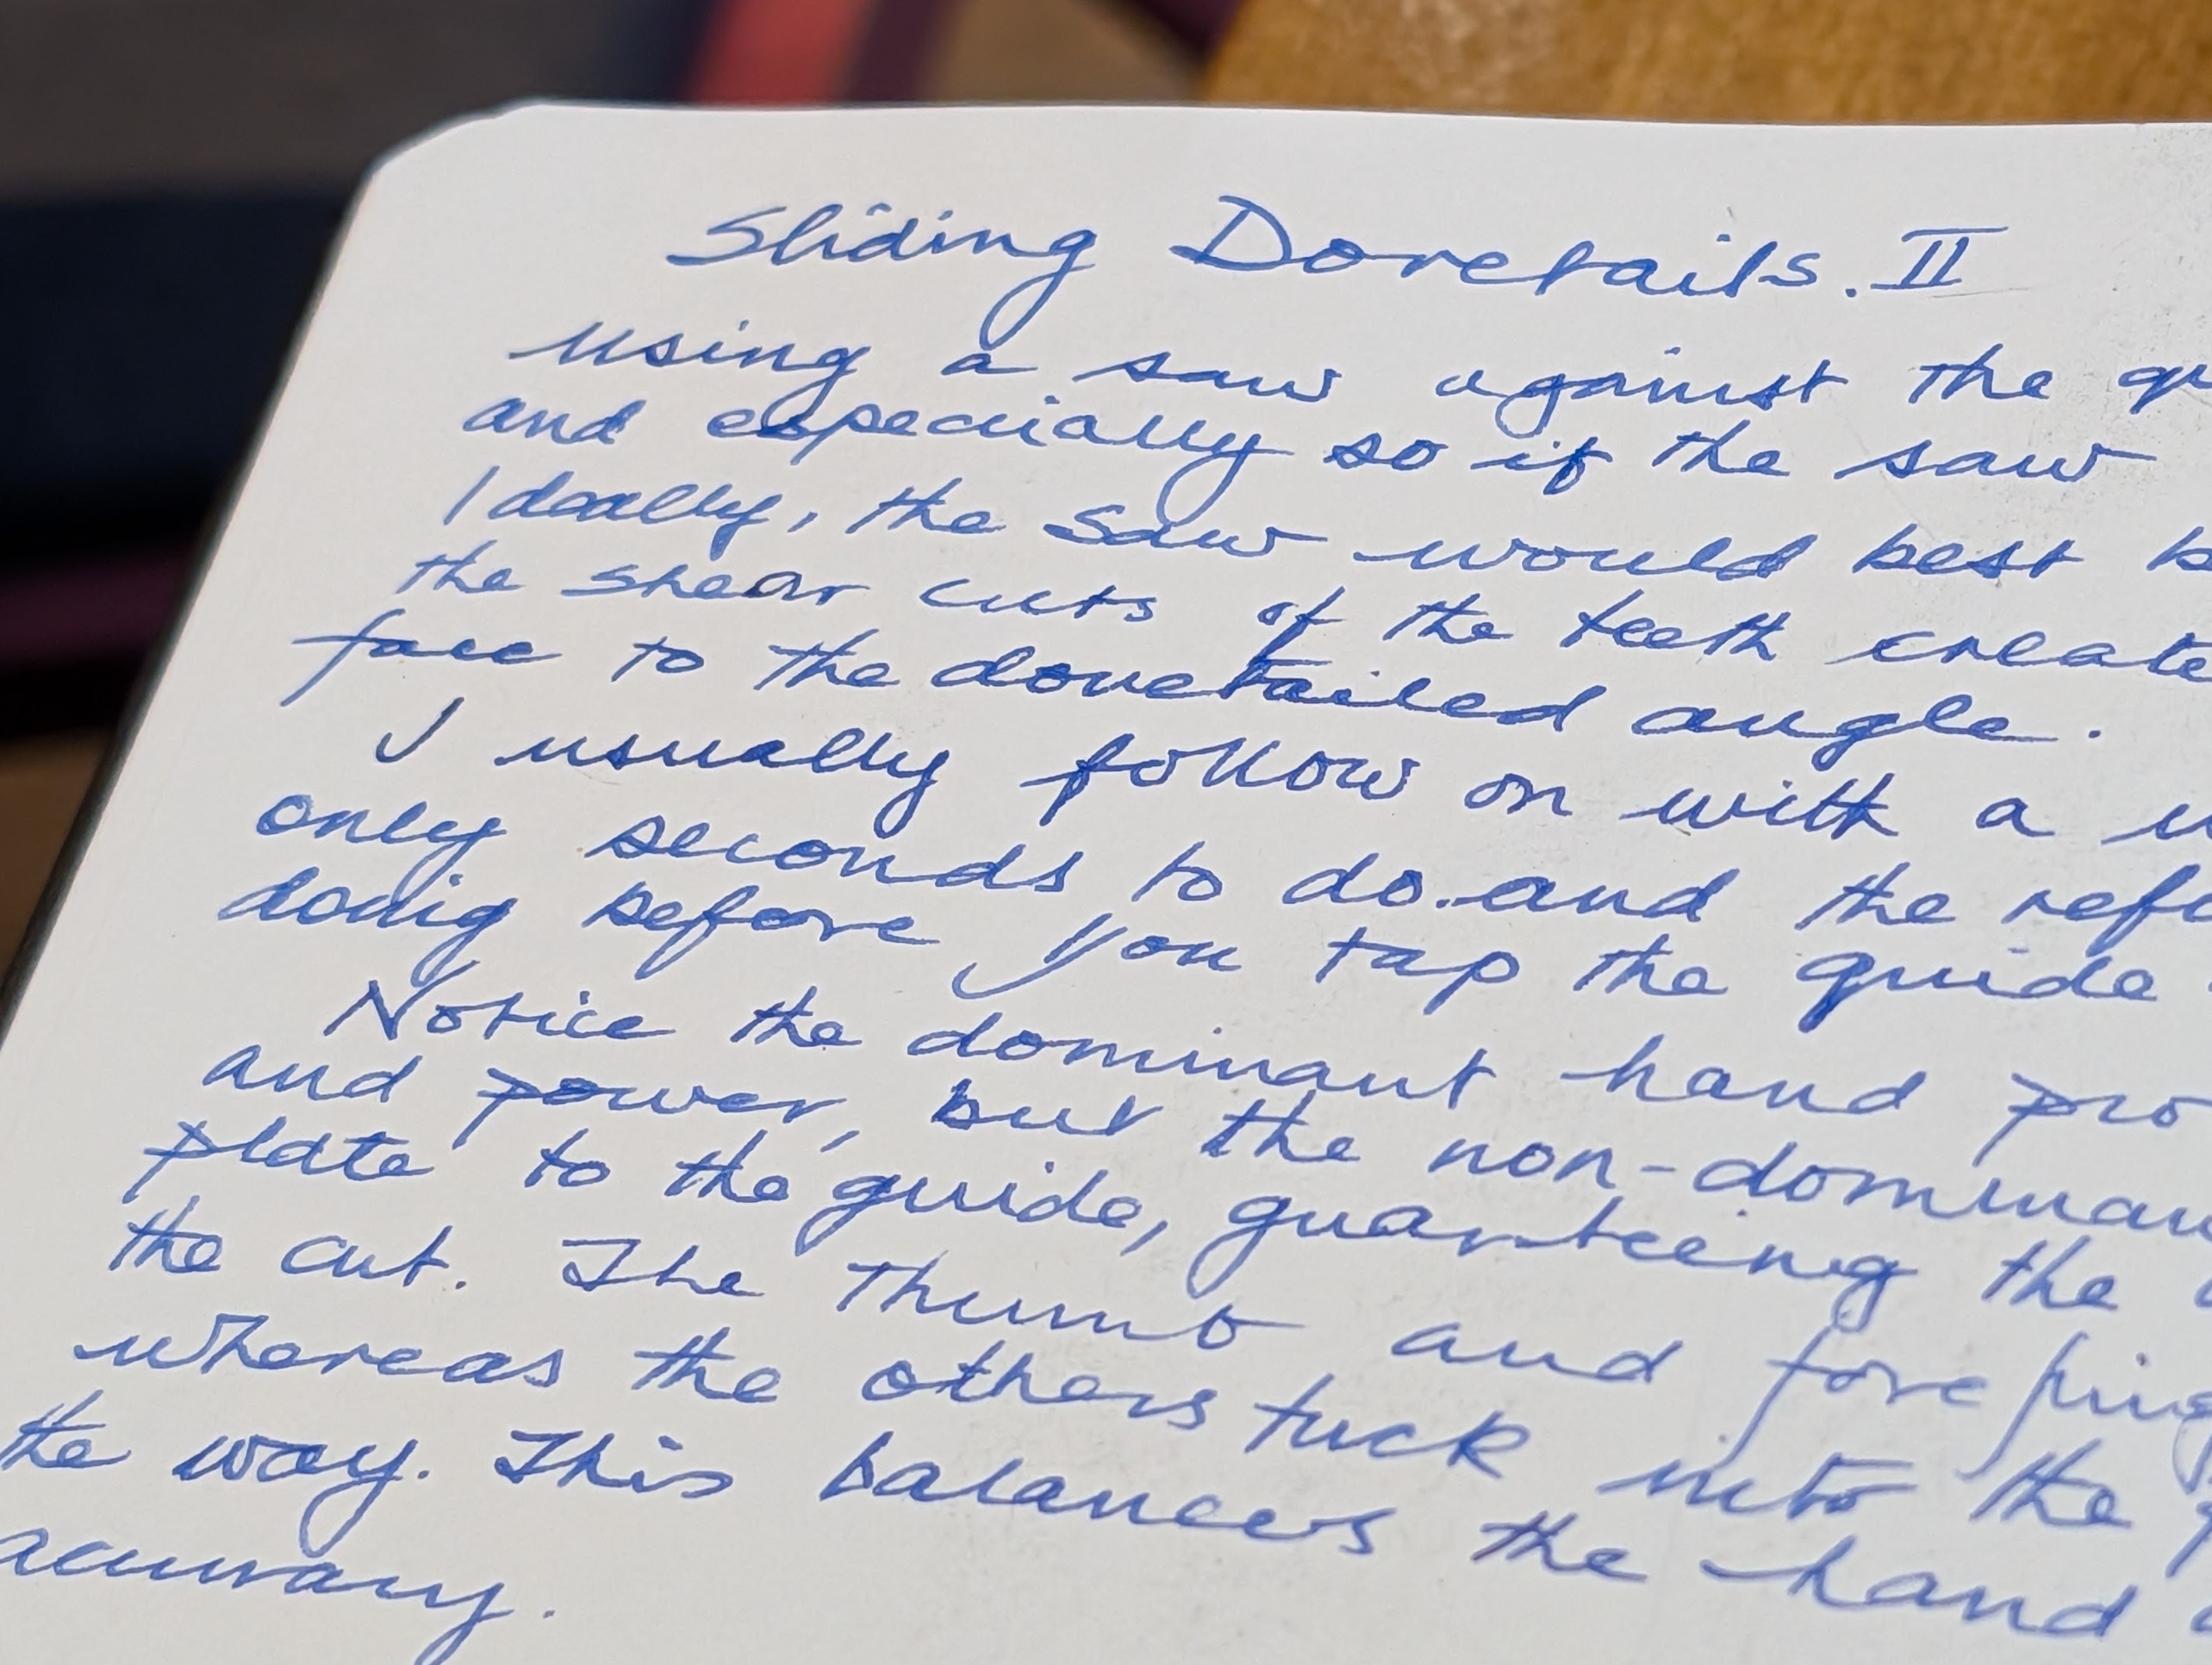 Sliding Dovetails. II
using a saw against the
and especially so if the saw
Ideally, the saw would best
the shear cuts of the teeth create
face to the dovetailed angle.
I usually follow on with a
only seconds to do and the
doing before you tap the guide
Notice the dominant hand
and power, but the non-
plate to the guide, guaranteeing the
the cut. The Thumb and
whereas the others tuck into the
the way. This balances the hand
accuracy.